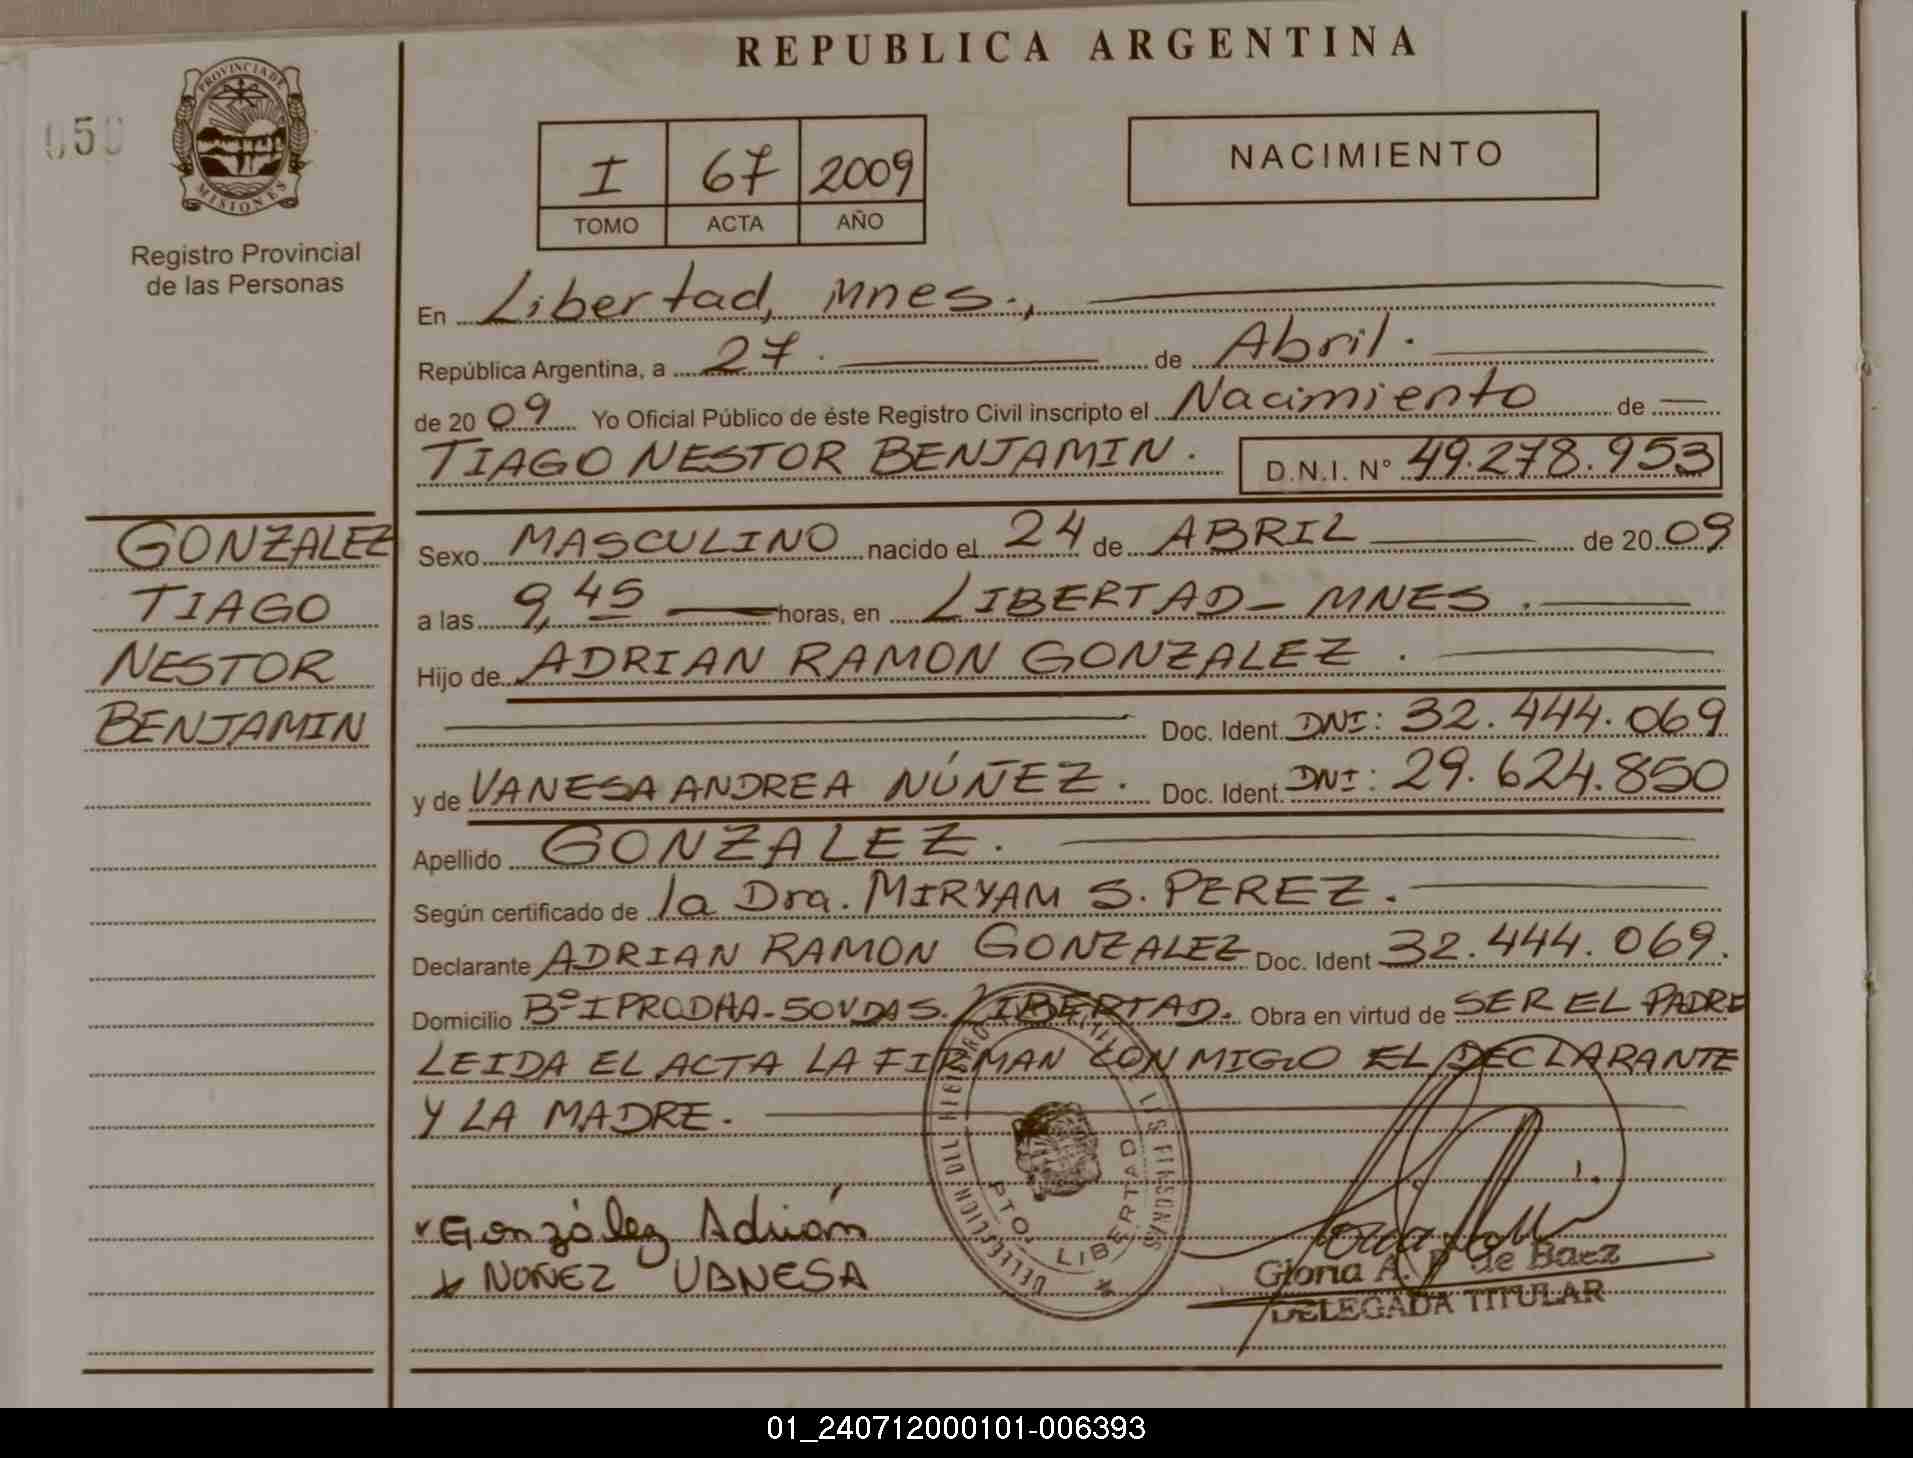 REPUBLICA ARGENTINA
050
PROVINCIA DE
MISIONES
Registro Provincial
de las Personas
I 67 2009
TOMO ACTA AÑO
NACIMIENTO
En Libertad, Mnes.,
República Argentina, a 27. de Abril.
de 2009 Yo Oficial Público de éste Registro Civil inscripto el Nacimiento de
TIAGO NESTOR BENJAMIN. D.N.I. N° 49.278.953
GONZALEZ
TIAGO
NESTOR
BENJAMIN
Sexo MASCULINO nacido el 24 de ABRIL de 2009
a las 9,45 horas, en LIBERTAD - MNES.
Hijo de ADRIAN RAMON GONZALEZ.
Doc. Ident. DNI: 32.444.069
y de VANESA ANDREA NÚÑEZ. Doc. Ident. DNI: 29.624.850
Apellido GONZALEZ.
Según certificado de la Dra. MIRYAM S. PEREZ.
Declarante ADRIAN RAMON GONZALEZ Doc. Ident 32.444.069.
Domicilio Bº IPRODHA-50VDAS. LIBERTAD. Obra en virtud de SER EL PADRE
LEIDA EL ACTA LA FIRMAN CONMIGO EL DECLARANTE
Y LA MADRE.
PTO. LIBERTAD
González Adrián
NUÑEZ VANESA
Gloria A. P de Baez
DELEGADA TITULAR
01_240712000101-006393